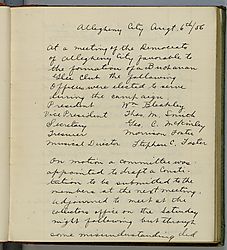 Allegheny City, Augt. 6th/56
At a meeting of the Democrats
of Allegheny City favorable to
the formation of a Buchanan
Glee Club the following
Officers were elected to serve
during the campaign.
President Wm Bleakley
Vice President Thos. M. Smith
Secretary Geo. C. McKinley
Treasurer Morrison Foster
Musical Director Stephen C. Foster
On motion a committee was
appointed to draft a Consti-
tution to be submitted to the
members at the next meeting.
Adjourned to meet at the
Collectors office on the Saturday
night following but through
some misunderstanding did